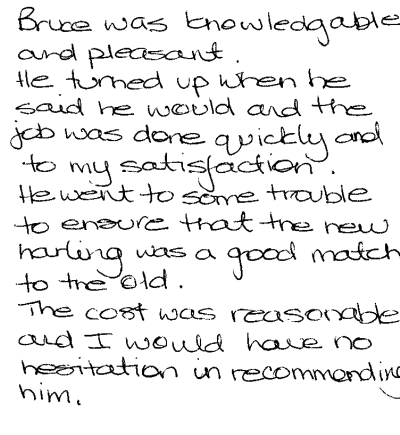 Bruce was knowledgable
and pleasant.
He turned up when he
said he would and the
job was done quickly and
to my satisfaction.
He went to some trouble
to ensure that the new
harling was a good match
to the old.
The cost was reasonable
and I would have no
hesitation in recommending
him.